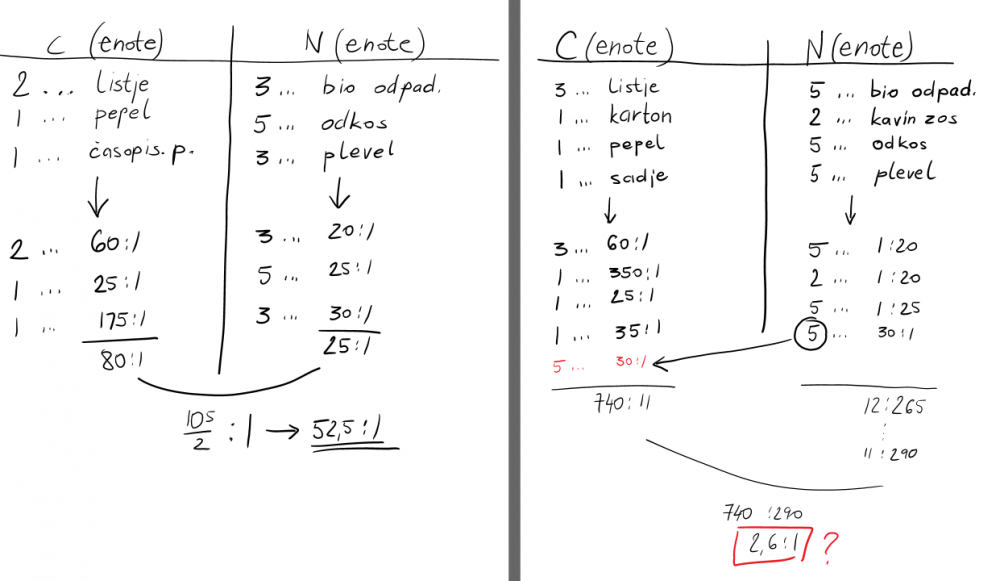 C (enote)
N (enote)
2 ... Listje
1 ... pepel
1 ... časopis. p.
3 ... bio odpad.
5 ... odkos
3 ... plevel
2 ... 60:1
1 ... 25:1
1 ... 175:1
80:1
3 ... 20:1
5 ... 25:1
3 ... 30:1
25:1
105/2 :1 → 52,5:1
C (enote)
N (enote)
3 ... Listje
1 ... karton
1 ... pepel
1 ... sadje
5 ... bio odpad.
2 ... kavin zos
5 ... odkos
5 ... plevel
3 ... 60:1
1 ... 350:1
1 ... 25:1
1 ... 35:1
5 ... 30:1
740:11
5 ... 1:20
2 ... 1:20
5 ... 1:25
5 ... 30:1
12:265
11:290
740 :290
2,6:1 ?